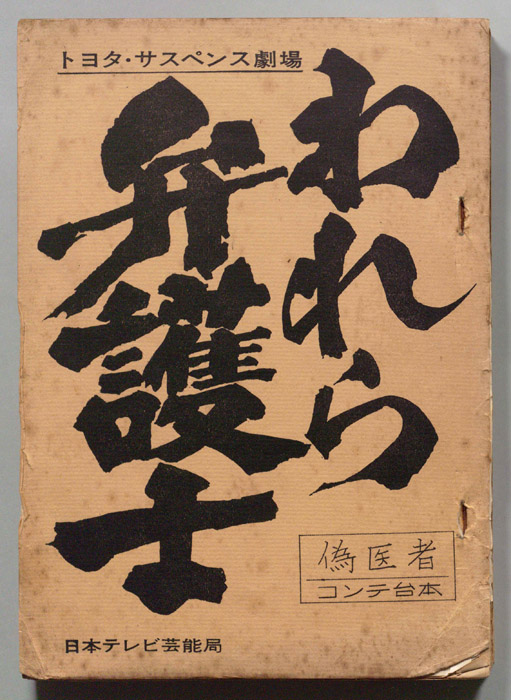 トヨタ・サスペンス劇場
われら
弁護士
偽医者
コンテ台本
日本テレビ芸能局